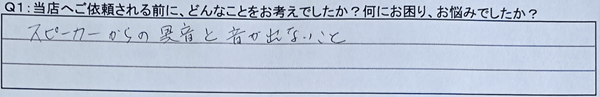 Q1:当店へご依頼される前に、どんなことをお考えでしたか?何にお困り、お悩みでしたか?
スピーカーからの異音と音が出ないこと